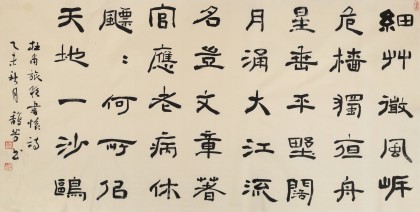 細艸微風岸
危檣獨夜舟
星垂平野闊
月涌大江流
名豈文章著
官應老病休
飄:何所似
天地一沙鷗
杜甫旅夜書懷詩
乙未秋月